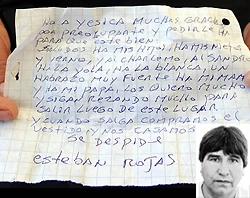 NO A YESICA MUCHAS GRACIAS
POR PREOCUPARTE Y PEDIRLE HA
DARIO QUE ESTE BIEN
SALUDOS HA MIS HIJOS, HA MIS NIETA
Y YERNO, YA CHARLEMO, AL SANDRO
LA YOLA, NO LA BLANCA, UN
HABRAZO MUY FUERTE HA MI MAMA
Y HA MI PAPA, LOS QUIERO MUCHO
Y SIGAN REZANDO MUCHO PARA
SALIR LUEGO DE ESTE LUGAR
Y CUANDO SALGA COMPRAMOS EL
VESTIDO Y NOS CASAMOS
SE DESPIDE
esteban ROJAS